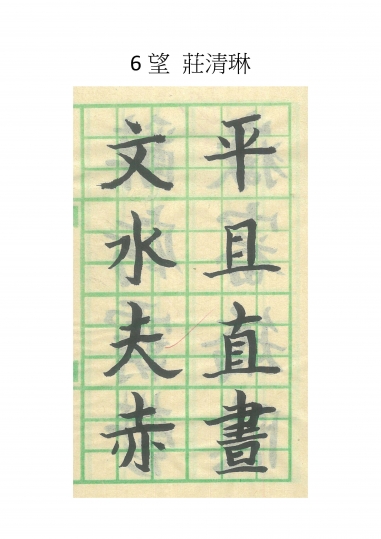 6 望 莊清琳
平且直晝
文水夫赤